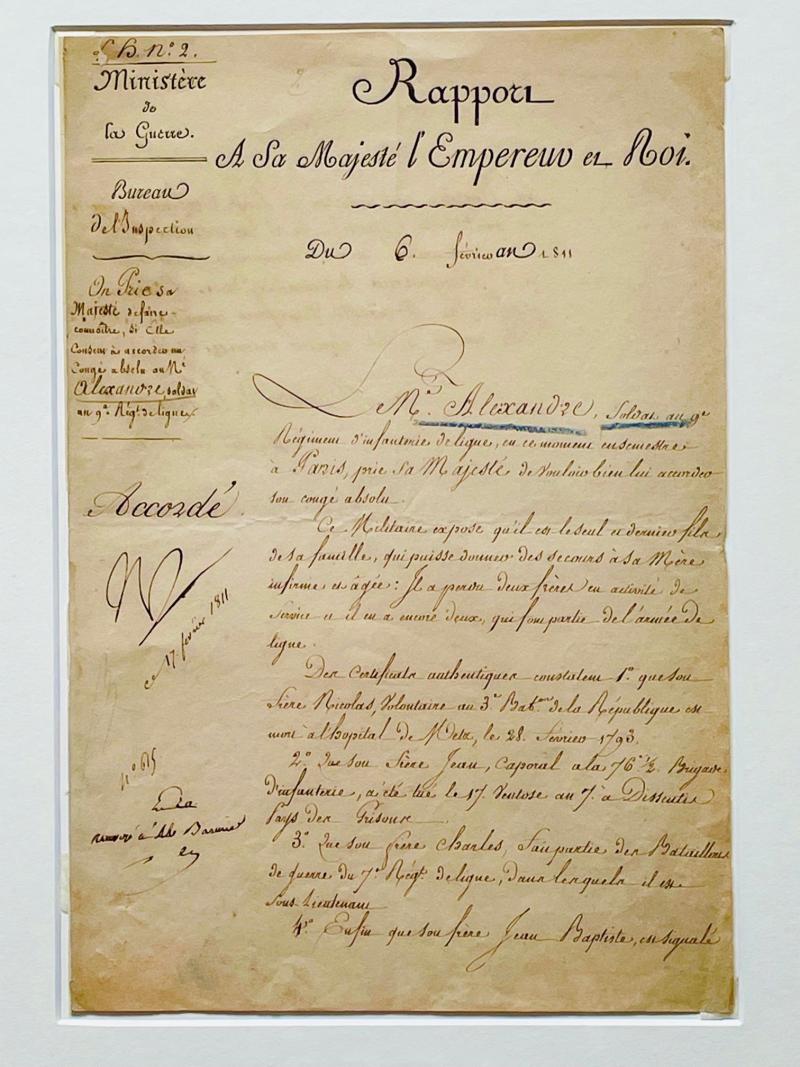 B. n.º 2.
Ministère
de
la Guerre.
Bureau
de l'Inspection
On Prie sa
Majesté de faire
connoître, si Elle
Consent à accorder un
Congé absolu au M.r
Alexandre, soldat
au 9.e Régt. de ligne.
Accordé
N
ce 17. février 1811
n.º 615
renvoyé à
Rapport
A Sa Majesté l'Empereur et Roi.
Du 6. février an 1811
Le M.r Alexandre, Soldat au 9.e
Régiment d'infanterie de ligne, en ce moment en semestre
à Paris, prie Sa Majesté de vouloir bien lui accorder
son congé absolu.
Ce Militaire expose qu'il est le seul et dernier fils
de sa famille, qui puisse donner des secours à sa Mère
infirme et âgée : Il a perdu deux frères en activité de
Service et il en a encore deux, qui font partie de l'armée de
ligne.
Des certificats authentiques constatent 1.º que son
frère Nicolas, Volontaire au 3.e Bat.on de la République est
mort à l'hopital de Metz, le 28. février 1793.
2.º Que son frère Jean, Caporal a la 76.e 1/2 Brigade
d'infanterie, a été tué le 17. Ventose an 7. à Dissentis
Pays des Grisons.
3.º Que son frère Charles, fait partie des Bataillons
de guerre du 7.e Régt. de ligne, dans lesquels il est
Sous Lieutenant
4.º Enfin que son frère Jean Baptiste, est signalé